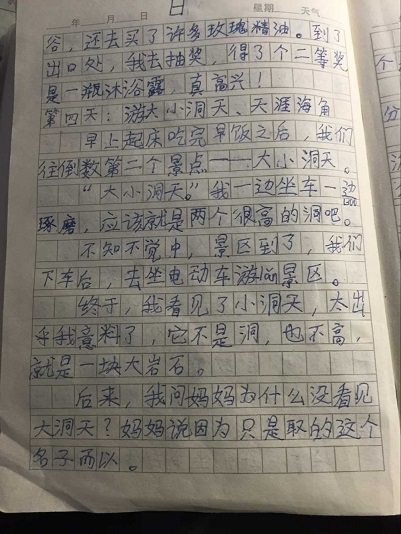 日
年 月 日 星期 天气
谷，还去买了许多玫瑰精油。到了
出口处，我去抽奖，得了个二等奖
是一瓶沐浴露，真高兴！
第四天：游大小洞天、天涯海角
早上起床吃完早饭之后，我们
往倒数第二个景点——大小洞天。
“大小洞天。”我一边坐车一边
琢磨，应该就是两个很高的洞吧。
不知不觉中，景区到了，我们
下车后，去坐电动车游览景区。
终于，我看见了小洞天，太出
乎我意料了，它不是洞，也不高，
就是一块大岩石。
后来，我问妈妈为什么没看见
大洞天？妈妈说因为只是取的这个
名子而以。
个
分